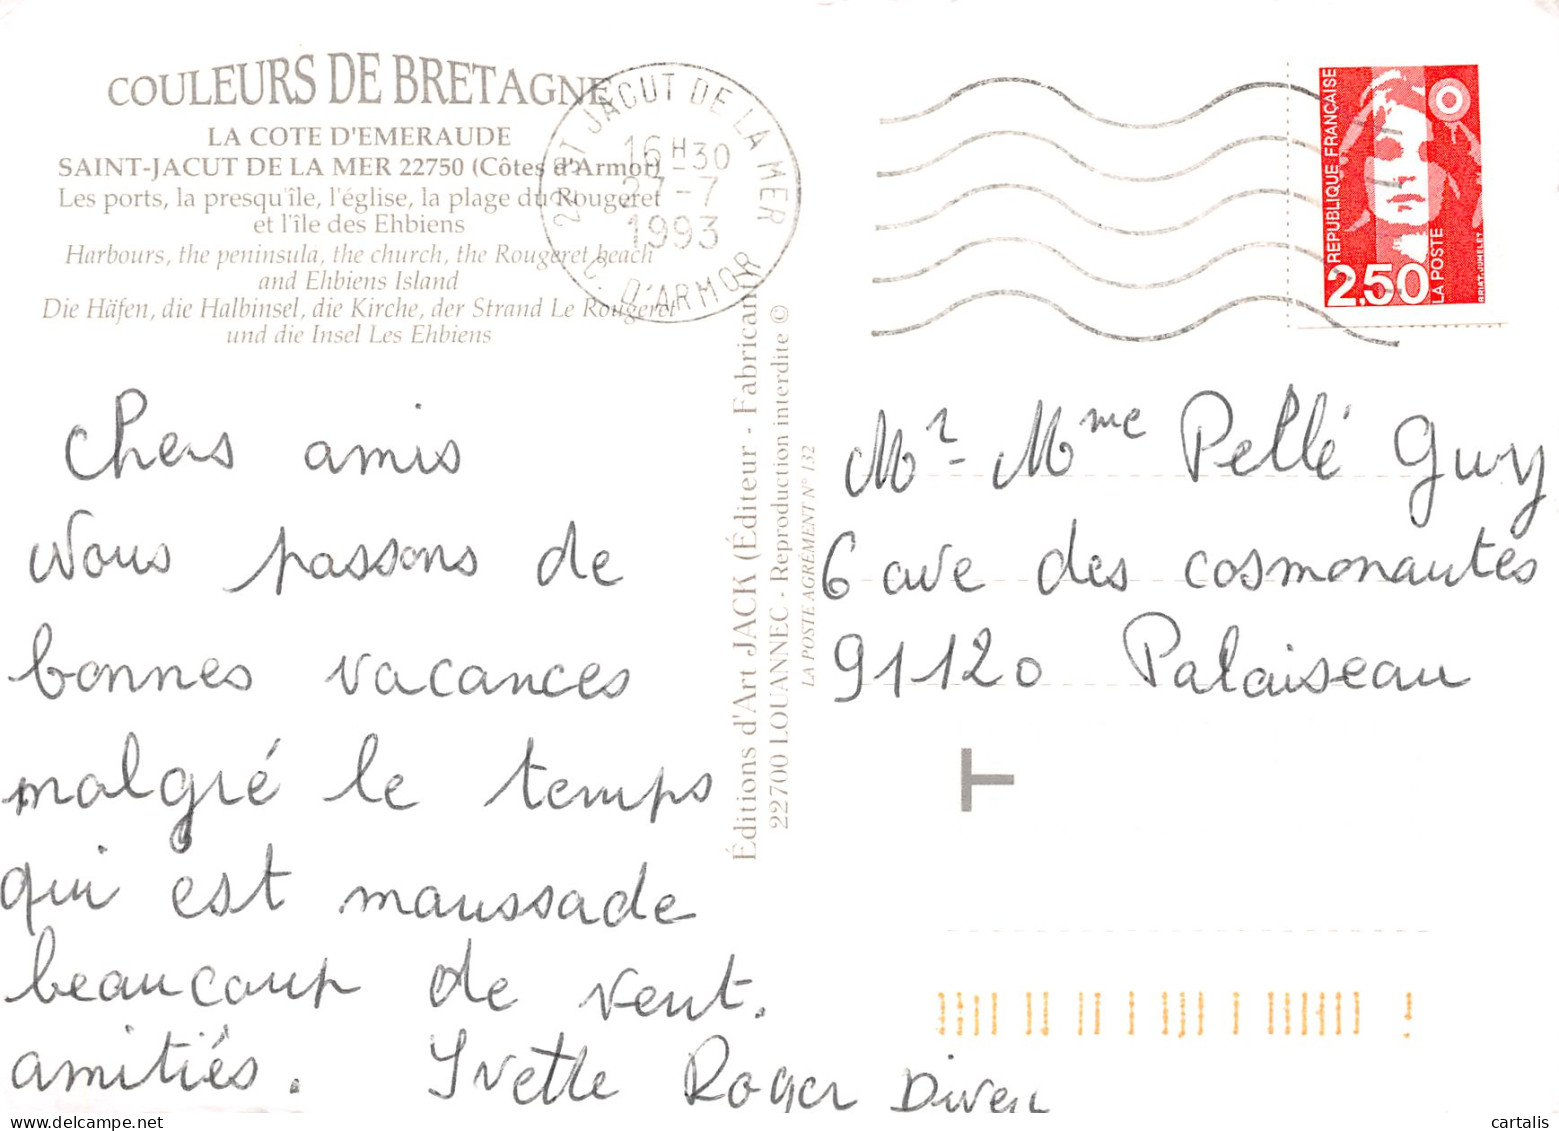 COULEURS DE BRETAGNE
LA COTE D'EMERAUDE
SAINT-JACUT DE LA MER 22750 (Côtes d'Armor)
Les ports, la presqu'île, l'église, la plage du Rougeret
et l'île des Ehbiens
Harbours, the peninsula, the church, the Rougeret beach
and Ehbiens Island
Die Häfen, die Halbinsel, die Kirche, der Strand Le Rougeret
und die Insel Les Ehbiens
ST JACUT DE LA MER
16H30
27-7
1993
C. D'ARMOR
REPUBLIQUE FRANÇAISE
2,50
LA POSTE
Chers amis
Nous passons de
bonnes vacances
malgré le temps
qui est maussade
beaucoup de vent.
amitiés. Yvette Roger
Éditions d'Art JACK (Éditeur - Fabricant)
22700 LOUANNEC - Reproduction interdite ©
LA POSTE AGRÉMENT N° 132
Mr - Mme Pellé Guy
6 ave des cosmonautes
91120 Palaiseau
T
cartalis